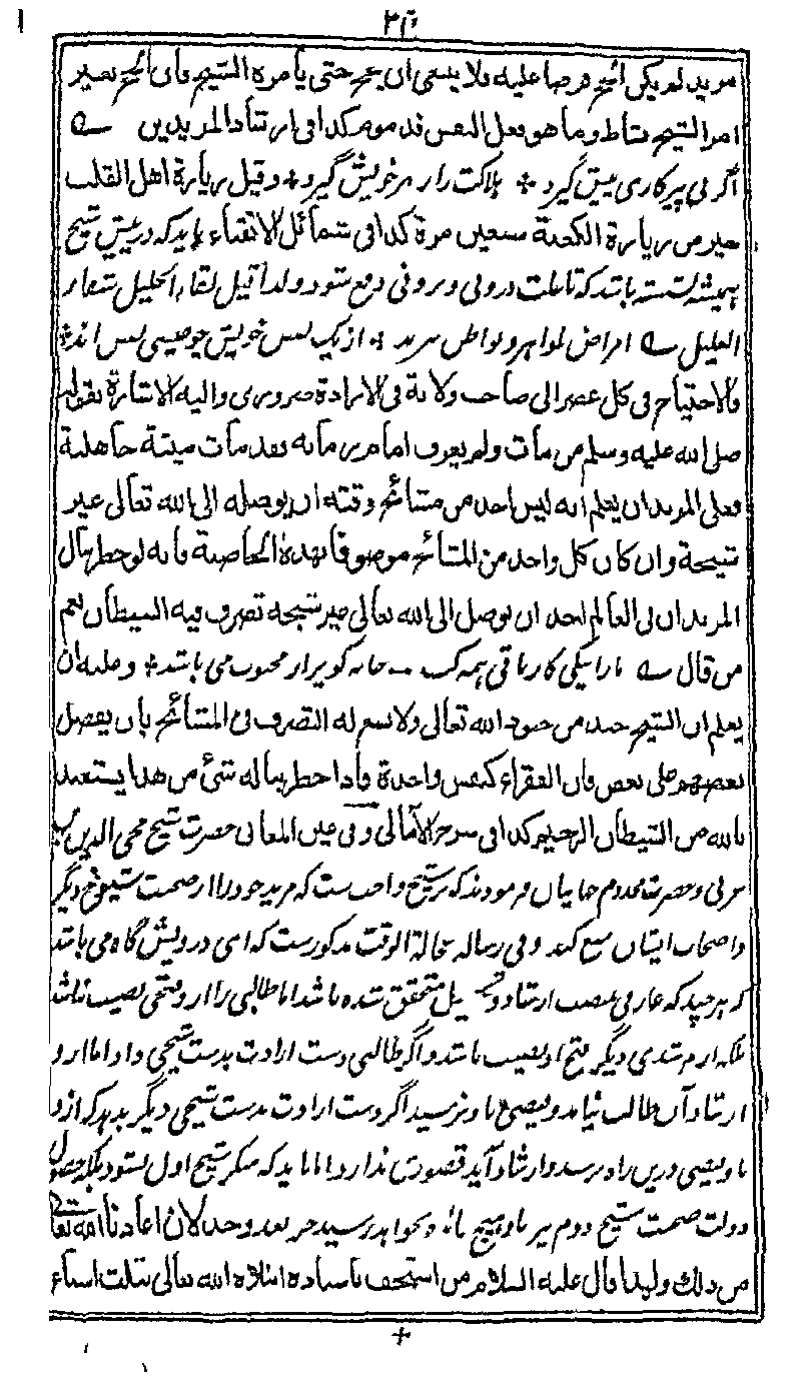 مرید لم یکن الحج فرضا علیه فلا ینبغی ان یحج حتی یأمره الشیخ فان الحج بغیر
امر الشیخ نشاط وما هو بفعل النفس فقد مذموم کذا فی ارشاد المریدین
اگر بی پیر کاری پیش گیرد + هلاکت را ز بهر خویش گیرد + وقیل زیارة اهل القلب
خیر من زیارة الکعبة سبعین مرة کذا فی شمائل الاتقیاء باید که در پیش شیخ
همیشه نشسته باشد که تا علت درونی و برونی دفع شود ولذا قیل لقاء الخلیل شفاء
العلیل امراض ظواهر و بواطن + از یک نفس خویش چو عیسی نفس اند +
والاحتیاج فی کل عصر الی صاحب ولایة فی الارادة ضروری والیه الاشارة بقوله
صلی الله علیه وسلم من مات ولم یعرف امام زمانه فقد مات میتة جاهلیة
فعلی المرید ان یعلم انه لیس احد من مشائخ وقته ان یوصله الی الله تعالی غیر
شیخه وان کان کل واحد من المشائخ موصوفا بهذه الخاصیة فانه لو خطر ببال
المرید ان فی العالم احد ان یوصل الی الله تعالی غیر شیخه تصرف فیه الشیطان نعم
من قال ما را یکی کار باقی همه کس خانه گو پر از محبوب می باشد + وعلیه ان
یعلم ان الشیخ جند من جنود الله تعالی ولا یسع له التصرف فی المشائخ بان یفضل
بعضهم علی بعض فان الفقراء کنفس واحدة فاذا خطر بباله شئ من هذا یستعیذ
بالله من الشیطان الرجیم کذا فی سرح الآمالی وفی عین المعانی حضرت شیخ محی الدین
عربی وحضرت مخدوم جهانیان فرمودند که بر شیخ واجب ست که مرید خود را از صحبت شیوخ دیگر
واصحاب ایشان منع کند وفی رساله الوقت مذکورست که ای درویش گاه می باشد
که هر چند که عارفی بمنصب ارشاد و تکمیل متحقق شده باشد اما طالبی را از و فتحی نصیب نباشد
بلکه از مرشدی دیگر فتح او نصیب باشد و اگر طالبی دست ارادت بدست شیخی داد اما از و
ارشاد آن طالب نیامد و فیضی باو نرسید اگر دست ارادت بدست شیخی دیگر بدهد که ازو
باو فیضی درین راه برسد وارشاد آید قصوری ندارد اما باید که منکر شیخ اول نشود بلکه حصول
دولت صحبت شیخ دوم نیز باو هیچ و نخواهد رسید جز بعد وخذلان اعاذنا الله تعالی
من ذلک ولهذا قال علیه السلام من استخف باستاده ابتلاه الله تعالی بثلث اشیاء